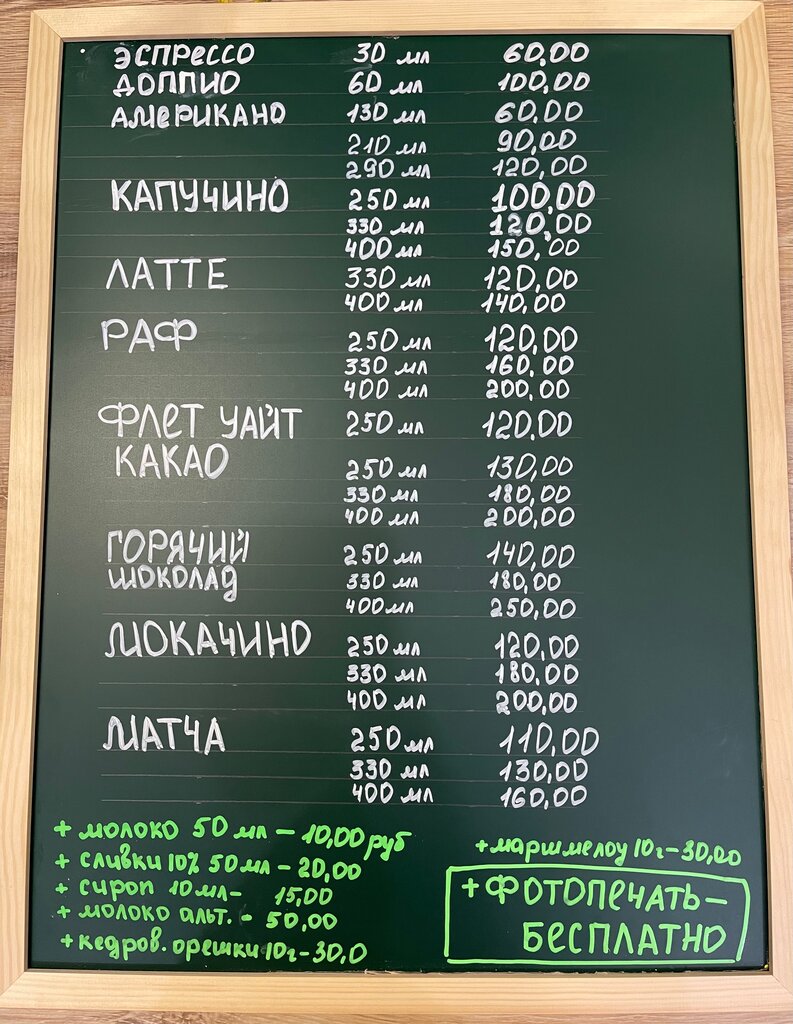 ЭСПРЕССО 30 мл 60,00
ДОППИО 60 мл 100,00
АМЕРИКАНО 130 мл 60,00
210 мл 90,00
290 мл 120,00
КАПУЧИНО 250 мл 100,00
330 мл 120,00
400 мл 150,00
ЛАТТЕ 330 мл 120,00
400 мл 140,00
РАФ 250 мл 120,00
330 мл 160,00
400 мл 200,00
ФЛЕТ УАЙТ 250 мл 120,00
КАКАО 250 мл 130,00
330 мл 180,00
400 мл 200,00
ГОРЯЧИЙ 250 мл 140,00
ШОКОЛАД 330 мл 180,00
400 мл 250,00
МОКАЧИНО 250 мл 120,00
330 мл 180,00
400 мл 200,00
МАТЧА 250 мл 110,00
330 мл 130,00
400 мл 160,00
+ молоко 50 мл – 10,00 руб
+ сливки 10% 50 мл – 20,00
+ сироп 10 мл – 15,00
+ молоко альт. – 50,00
+ кедров. орешки 10г – 30,0
+ маршмелоу 10г – 30,00
+ ФОТОПЕЧАТЬ –
БЕСПЛАТНО